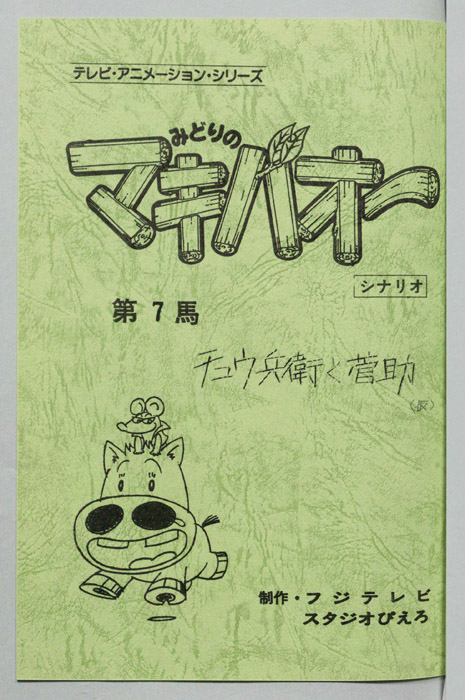 テレビ・アニメーション・シリーズ
みどりの
マキバオー
シナリオ
第7馬
チュウ兵衛と菅助
(仮)
制作・フジテレビ
スタジオぴえろ